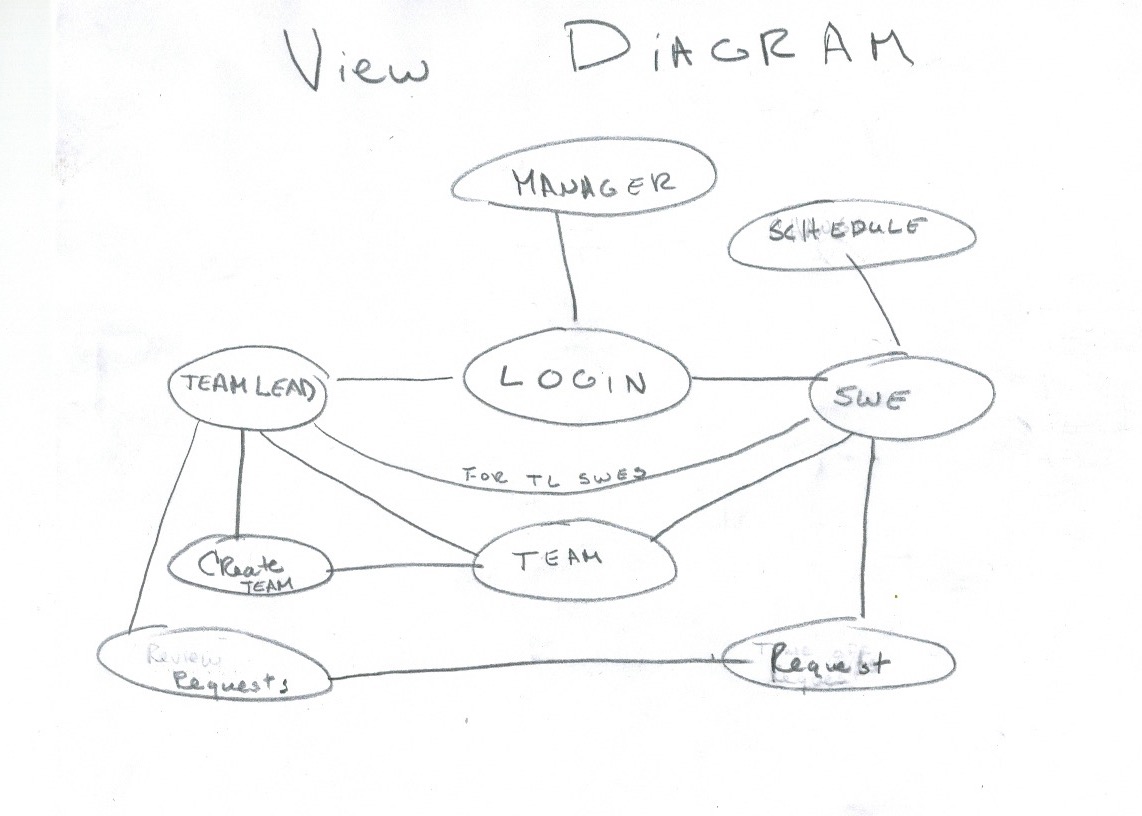 View DiAGRAM
MANAGER
SCHEDULE
TEAM LEAD
LOGiN
SWE
FOR TL SWES
CReate
TEAM
TEAM
Review
Requests
Request